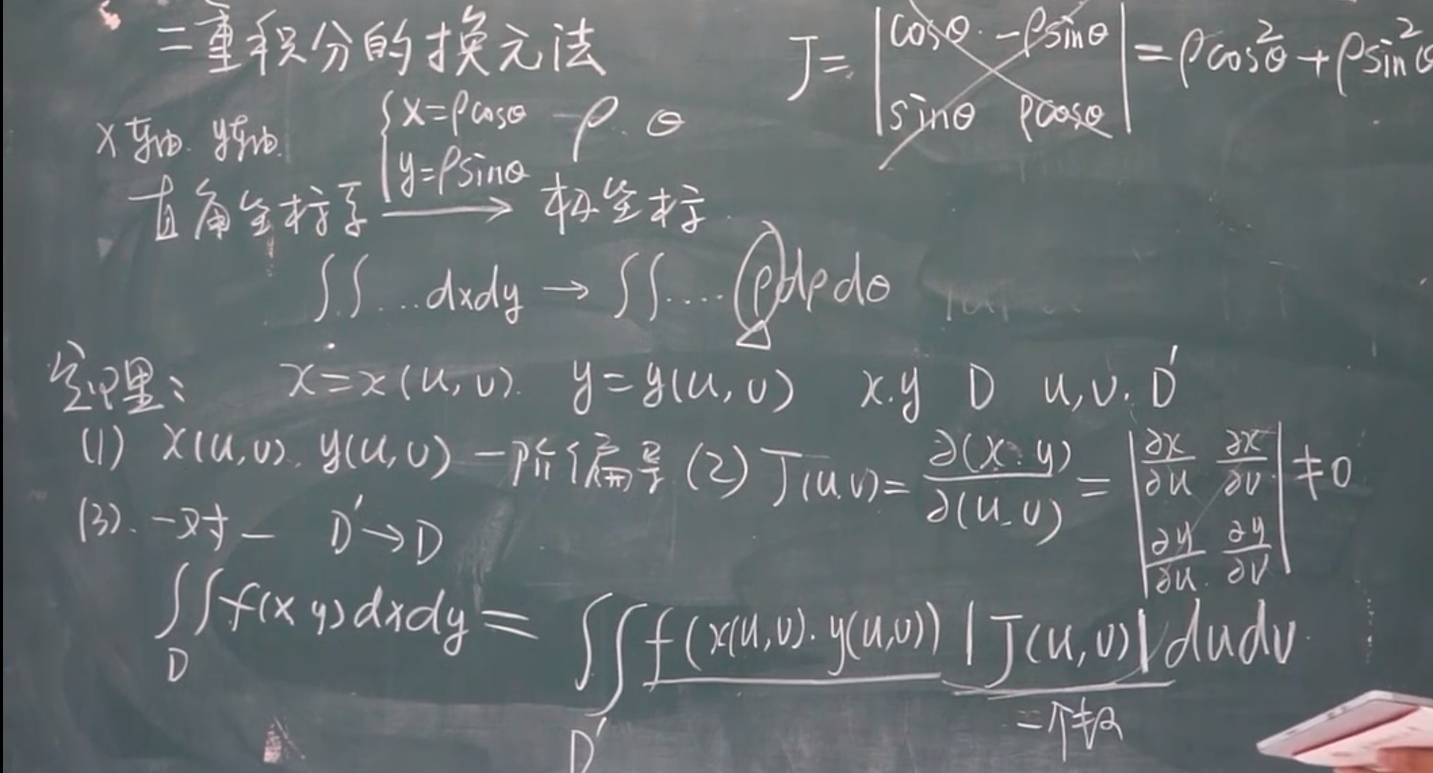 二重积分的换元法
J = | cosθ -ρsinθ | = ρcos²θ + ρsin²θ
| sinθ ρcosθ |
x轴. y轴. { x=ρcosθ ρ. θ
{ y=ρsinθ
直角坐标系 → 极坐标
∬...dxdy → ∬....ρdρdθ
定理: x=x(u,v). y=y(u,v) x.y D u,v. D′
(1) x(u,v). y(u,v) 一阶偏导 (2) J(u.v)= ∂(x.y)/∂(u.v) = | ∂x/∂u ∂x/∂v | ≠0
| ∂y/∂u. ∂y/∂v |
(3). 一对一 D′→D
∬_D f(x y)dxdy = ∬_D′ f(x(u,v). y(u,v)) |J(u,v)| dudv.